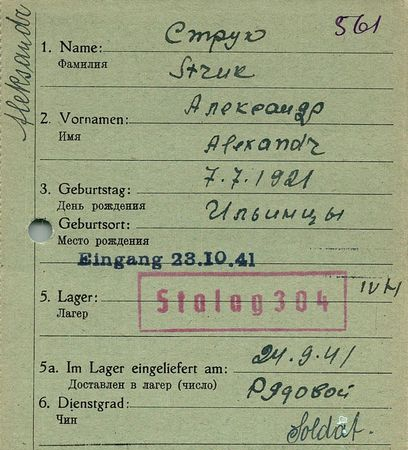 Aleksandr
561
1. Name: Струк
Фамилия Struk
2. Vornamen: Александр
Имя Alexandr
3. Geburtstag: 7.7.1921
День рождения
Geburtsort: Ильинцы
Место рождения
Eingang 23.10.41
5. Lager: Stalag 304 IV H
Лагер
5a. Im Lager eingeliefert am: 24.9.41
Доставлен в лагер (число)
6. Dienstgrad: Рядовой
Чин Soldat.